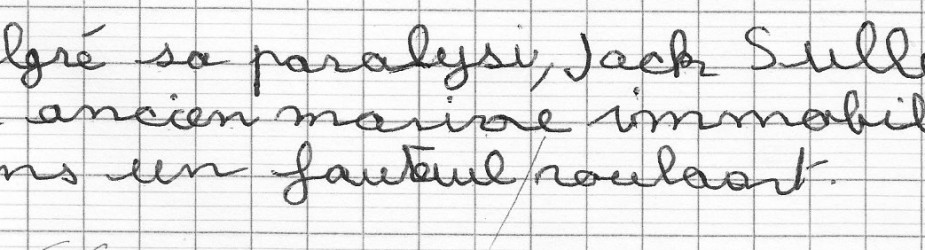 lgré sa paralysi, Jack Sull
ancien marine immobil
ns un fauteuil roulant.